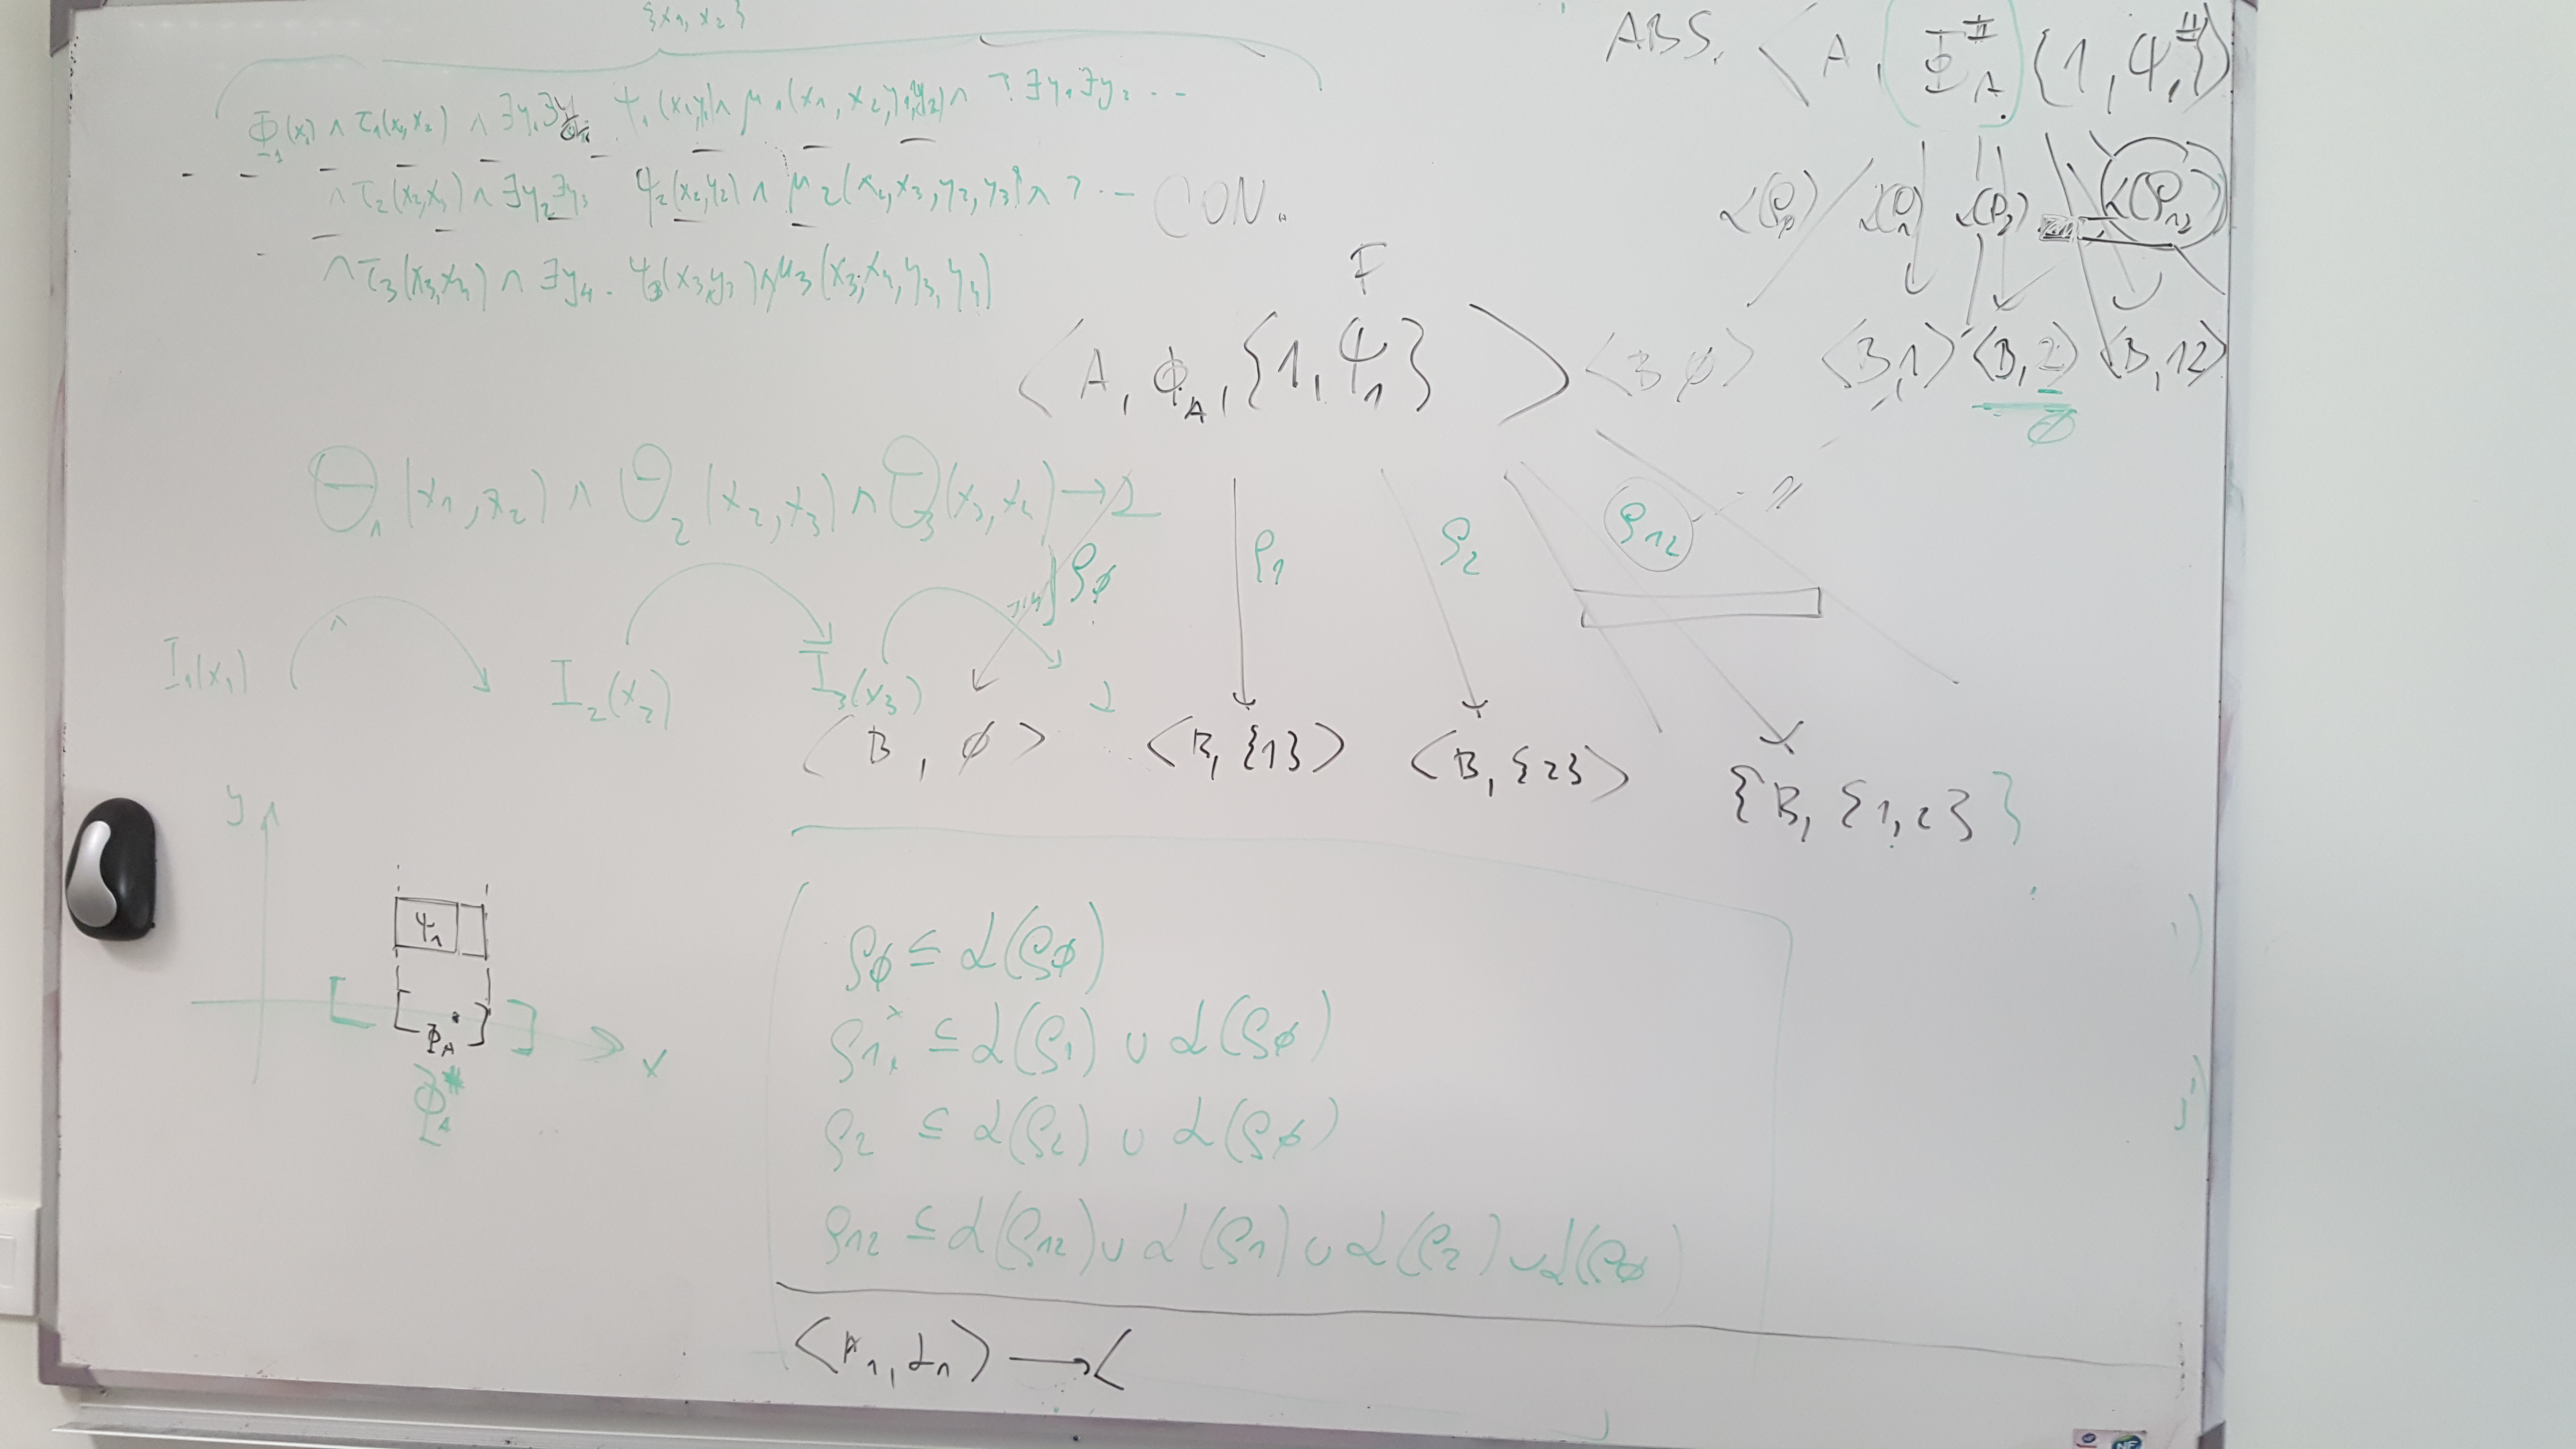 {x₁, x₂}
Φ₁(x₁) ∧ τ₁(x₁,x₂) ∧ ∃y₁∃y₂ ψ₁(x₁,y₁) ∧ μ₁(x₁, x₂, y₁, y₂) ∧ ? ∃y₁ ∃y₂ ...
∧ τ₂(x₂,x₃) ∧ ∃y₂∃y₃ ψ₂(x₂,y₂) ∧ μ₂(x₂,x₃,y₂,y₃) ∧ ? ...
∧ τ₃(x₃,x₄) ∧ ∃y₄. ψ₃(x₃,y₃) ∧ μ₃(x₃,x₄,y₃,y₄)
ABS. ⟨A, Φ_A^# {1, Ψ₁^#}⟩
α(ρ_∅) α(ρ₁) α(ρ₂) α(ρ₁₂)
CON.
F
⟨A, Φ_A, {1, Ψ₁}⟩
⟨B ∅⟩ ⟨B,1⟩ ⟨B,2⟩ ⟨B,12⟩
∅
Θ₁(x₁,x₂) ∧ Θ₂(x₂,x₃) ∧ Θ₃(x₃,x₄) → ⊥
ρ_∅ ρ₁ ρ₂ ρ₁₂
I₁(x₁) I₂(x₂) I₃(x₃) ⊥
⟨B, ∅⟩ ⟨B,{1}⟩ ⟨B,{2}⟩ {B,{1,2}}
y
Ψ₁
Φ_A
x
Φ_A^#
ρ_∅ ⊆ α(ρ_∅)
ρ₁ ⊆ α(ρ₁) ∪ α(ρ_∅)
ρ₂ ⊆ α(ρ₂) ∪ α(ρ_∅)
ρ₁₂ ⊆ α(ρ₁₂) ∪ α(ρ₁) ∪ α(ρ₂) ∪ α(ρ_∅)
⟨A₁, α₁⟩ → ⟨